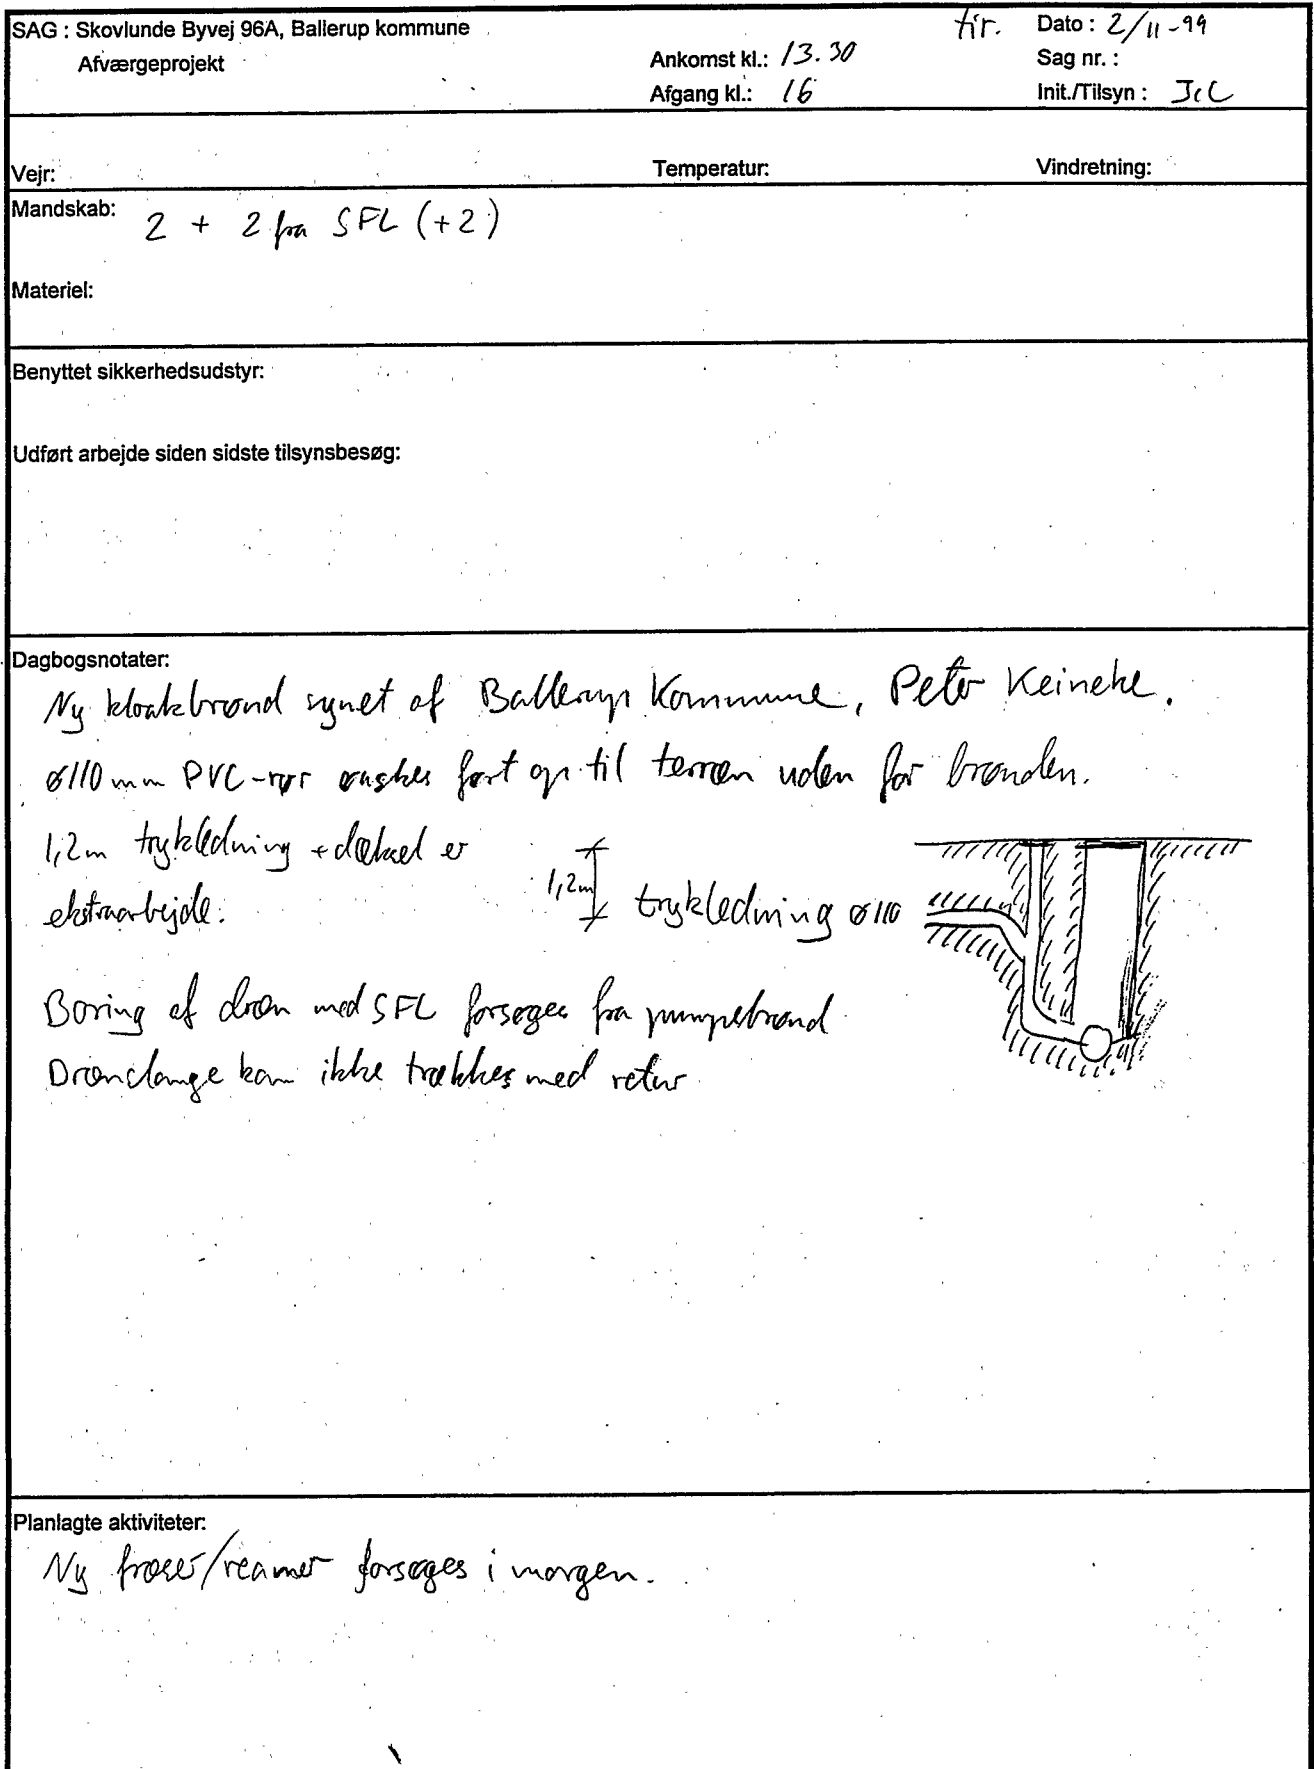 SAG : Skovlunde Byvej 96A, Ballerup kommune tir. Dato : 2/11-99
Afværgeprojekt Ankomst kl.: 13.30 Sag nr. :
Afgang kl.: 16 Init./Tilsyn : JCC
Vejr: Temperatur: Vindretning:
Mandskab: 2 + 2 fra SFL (+2)
Materiel:
Benyttet sikkerhedsudstyr:
Udført arbejde siden sidste tilsynsbesøg:
Dagbogsnotater:
Ny kloakbrønd synet af Ballerup Kommune, Peter Keineke.
ø110 mm PVC-rør ønskes ført op til terræn uden for brønden.
1,2m trykledning + dæksel er
ekstraarbejde.
1,2m trykledning ø110
Boring af dræn med SFL forsøges fra pumpebrønd
Drænslange kan ikke trækkes med retur
Planlagte aktiviteter:
Ny fræser/reamer forsøges i morgen.